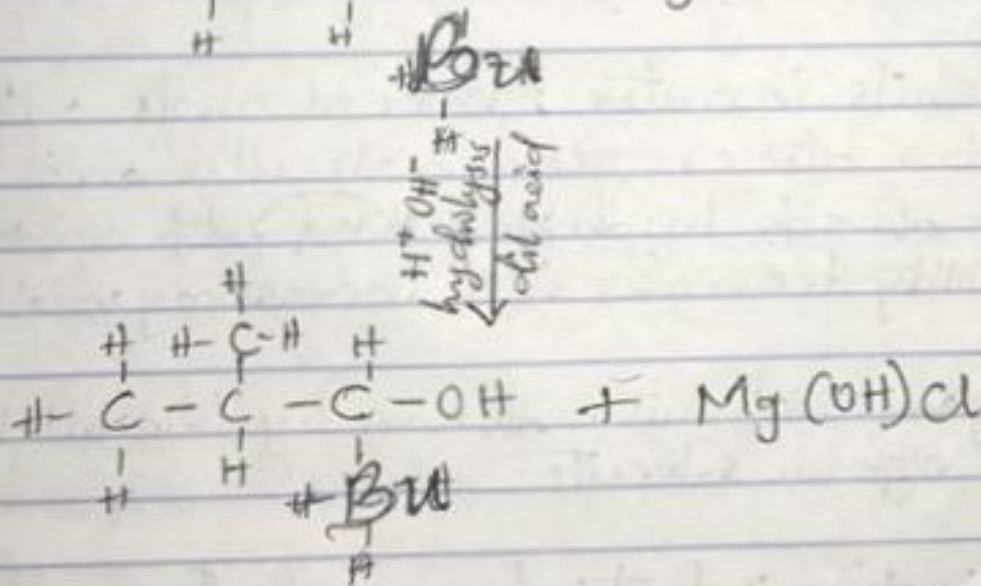 H H
H
H
H⁺ OH⁻
hydrolysis
dil acid
H
H H-C-H H
H-C-C-C-OH + Mg(OH)Cl
H H H
H